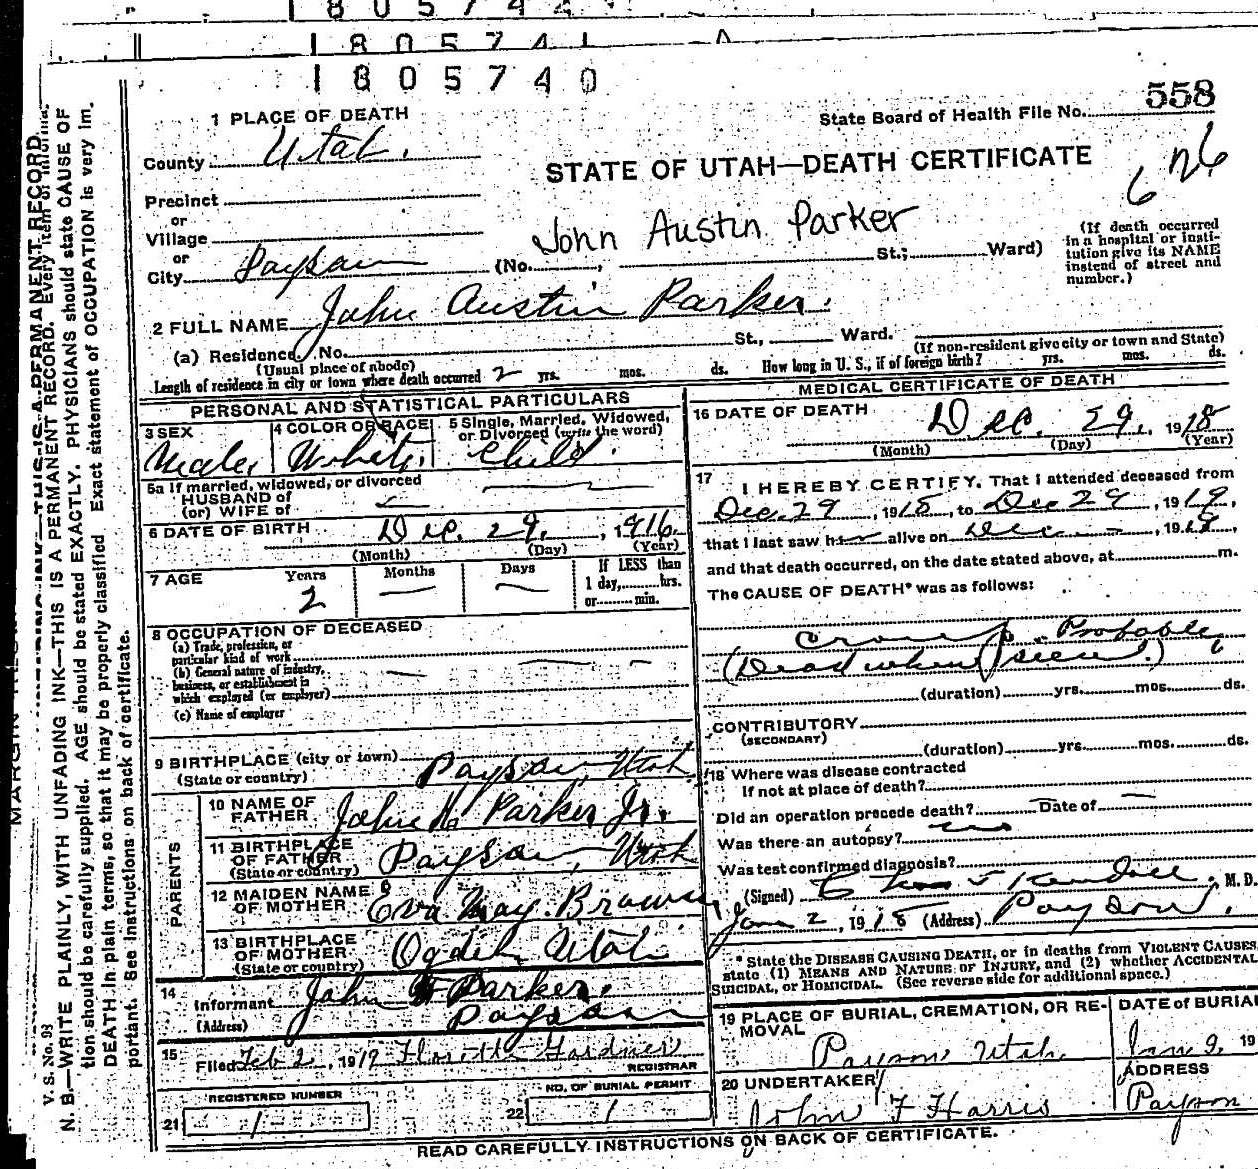 1 8 0 5 7 4 2
1 8 0 5 7 4 1
1 8 0 5 7 4 0
558
State Board of Health File No.
1 PLACE OF DEATH
County Utah.
STATE OF UTAH—DEATH CERTIFICATE
Precinct
or
Village
or
City Payson
John Austin Parker
(No. , St.; Ward)
(If death occurred
in a hospital or insti-
tution give its NAME
instead of street and
number.)
2 FULL NAME John Austin Parker.
(a) Residence. No. St., Ward.
(Usual place of abode)
(If non-resident give city or town and State)
Length of residence in city or town where death occurred 2 yrs. mos. ds. How long in U. S., if of foreign birth? yrs. mos. ds.
PERSONAL AND STATISTICAL PARTICULARS
3 SEX
Male
4 COLOR OR RACE
White
5 Single, Married, Widowed,
or Divorced (write the word)
Child.
5a If married, widowed, or divorced
HUSBAND of
(or) WIFE of
6 DATE OF BIRTH Dec. 29, 1916
(Month) (Day) (Year)
7 AGE Years Months Days
2
If LESS than
1 day, hrs.
or min.
8 OCCUPATION OF DECEASED
(a) Trade, profession, or
particular kind of work
(b) General nature of industry,
business, or establishment in
which employed (or employer)
(c) Name of employer
9 BIRTHPLACE (city or town) Payson, Utah
(State or country)
PARENTS
10 NAME OF
FATHER John H. Parker Jr.
11 BIRTHPLACE
OF FATHER Payson, Utah
(State or country)
12 MAIDEN NAME
OF MOTHER Eva May Brown
13 BIRTHPLACE
OF MOTHER Ogden Utah
(State or country)
14
Informant John Parker.
(Address) Payson
15
Filed Feb 2, 1919 Gardner
REGISTRAR
REGISTERED NUMBER
21 1
NO. OF BURIAL PERMIT
22 1
MEDICAL CERTIFICATE OF DEATH
16 DATE OF DEATH Dec. 29, 1918
(Month) (Day) (Year)
17 I HEREBY CERTIFY, That I attended deceased from
Dec. 29, 1918, to Dec 29, 1918,
that I last saw h alive on Dec , 1918,
and that death occurred, on the date stated above, at m.
The CAUSE OF DEATH* was as follows:
Croup Probably
(Dead when seen.)
(duration) yrs. mos. ds.
CONTRIBUTORY
(SECONDARY)
(duration) yrs. mos. ds.
18 Where was disease contracted
If not at place of death?
Did an operation precede death? Date of
Was there an autopsy? no
Was test confirmed diagnosis?
(Signed) , M. D.
Jan 2, 1918 (Address) Payson.
* State the DISEASE CAUSING DEATH, or in deaths from VIOLENT CAUSES,
state (1) MEANS AND NATURE OF INJURY, and (2) whether ACCIDENTAL,
SUICIDAL, or HOMICIDAL. (See reverse side for additional space.)
19 PLACE OF BURIAL, CREMATION, OR RE-
MOVAL
Payson Utah
DATE of BURIAL
Jan 2, 19
20 UNDERTAKER
John F Harris
ADDRESS
Payson
READ CAREFULLY INSTRUCTIONS ON BACK OF CERTIFICATE.
V. S. No. 93
N. B.—WRITE PLAINLY, WITH UNFADING INK—THIS IS A PERMANENT RECORD. Every item of informa-
tion should be carefully supplied. AGE should be stated EXACTLY. PHYSICIANS should state CAUSE OF
DEATH in plain terms, so that it may be properly classified. Exact statement of OCCUPATION is very im-
portant. See instructions on back of certificate.